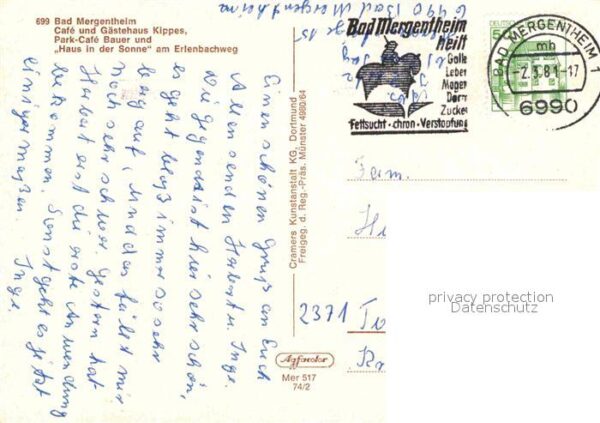 699 Bad Mergentheim
Café und Gästehaus Kippes,
Park-Café Bauer und
„Haus in der Sonne" am Erlenbachweg
6990 Bad Mergentheim
Einen schönen Gruß an Euch
Allen senden Herbert u. Inge.
Die Gegend ist hier sehr schön,
es geht bloß immer so sehr
berg auf, und das fällt mir
noch sehr schwer. Gestern hat
Herbert erst die erste Anwendung
bekommen. Sonst geht es jetzt
einigermaßen. Inge.
Cramers Kunstanstalt KG, Dortmund
Freigeg. d. Reg.-Präs. Münster 4980/64
Agfacolor
Mer 517
74/2
Bad Mergentheim
heilt
Galle
Leber
Magen
Darm
Zucker
Fettsucht · chron · Verstopfung
DEUTSCHE
BAD MERGENTHEIM 1
mb
-2.5.81-17
6990
Fam.
2371
privacy protection
Datenschutz